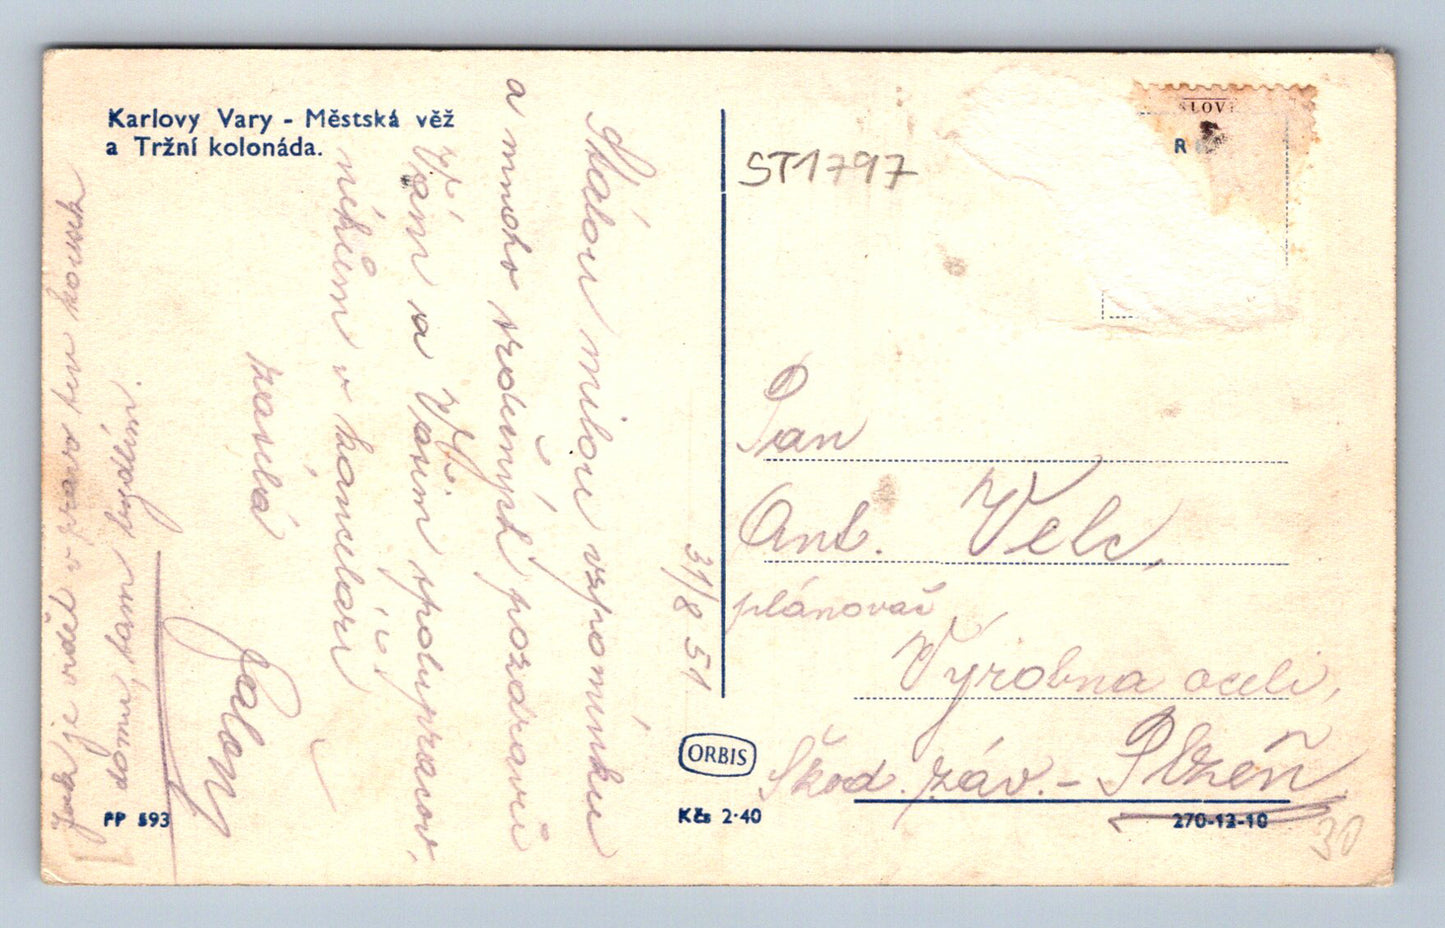 Karlovy Vary - Městská věž
a Tržní kolonáda.
Stálou milou vzpomínku
a mnoho srdečných pozdravů
Vám a Vašim spolupracov.
níkům v kanceláři
zasílá
Galany
Jak je viděl v pravo ten kousek
domu, tam bydlím.
31/8 51
ST1797
SLOV
R
Pan
Ant. Velc,
plánovač
Výrobna oceli,
Škod. záv. - Plzeň
ORBIS
PP 593
Kčs 2·40
270-12-10
30